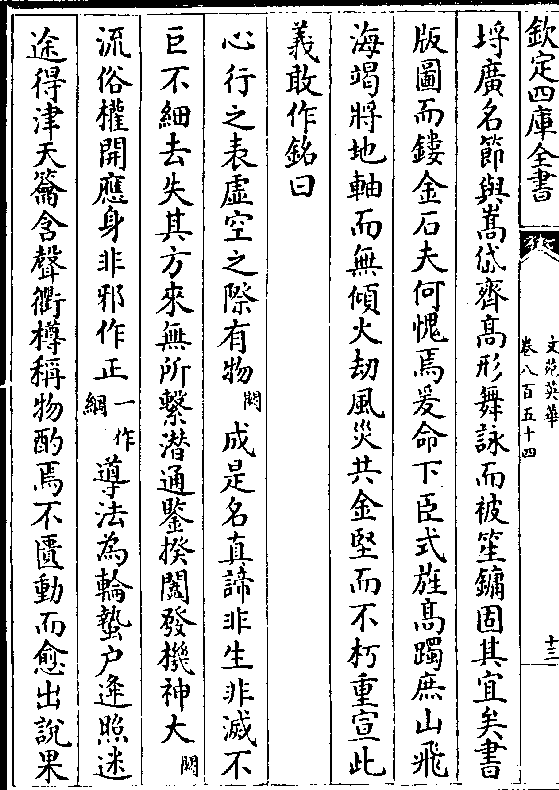 欽定四庫全書
文苑英華
卷八百五十四
十三
埒廣名節與嵩岱齊髙形舞詠而被笙鏞固其宜矣書
版圖而鏤金石夫何愧焉爰命下臣式旌髙躅庶山飛
海竭將地軸而無傾火劫風災共金堅而不朽重宣此
義敢作銘曰
心行之表虛空之際有物闕成是名真諦非生非滅不
巨不細去失其方來無所繫潜通鑒揆闔發機神大闕
流俗權開應身非邪作正一作綱導法為輪蟄户逹照迷
途得津天籥含聲衢樽稱物酌焉不匱動而愈出說果